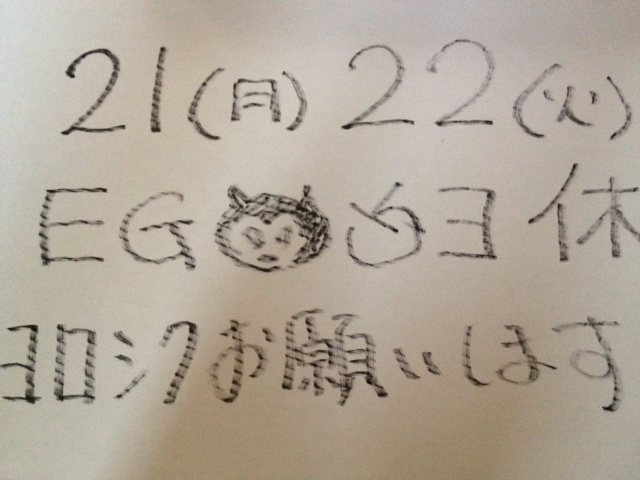 21(月) 22(火)
EG GƎ 休
ヨロシクお願いします